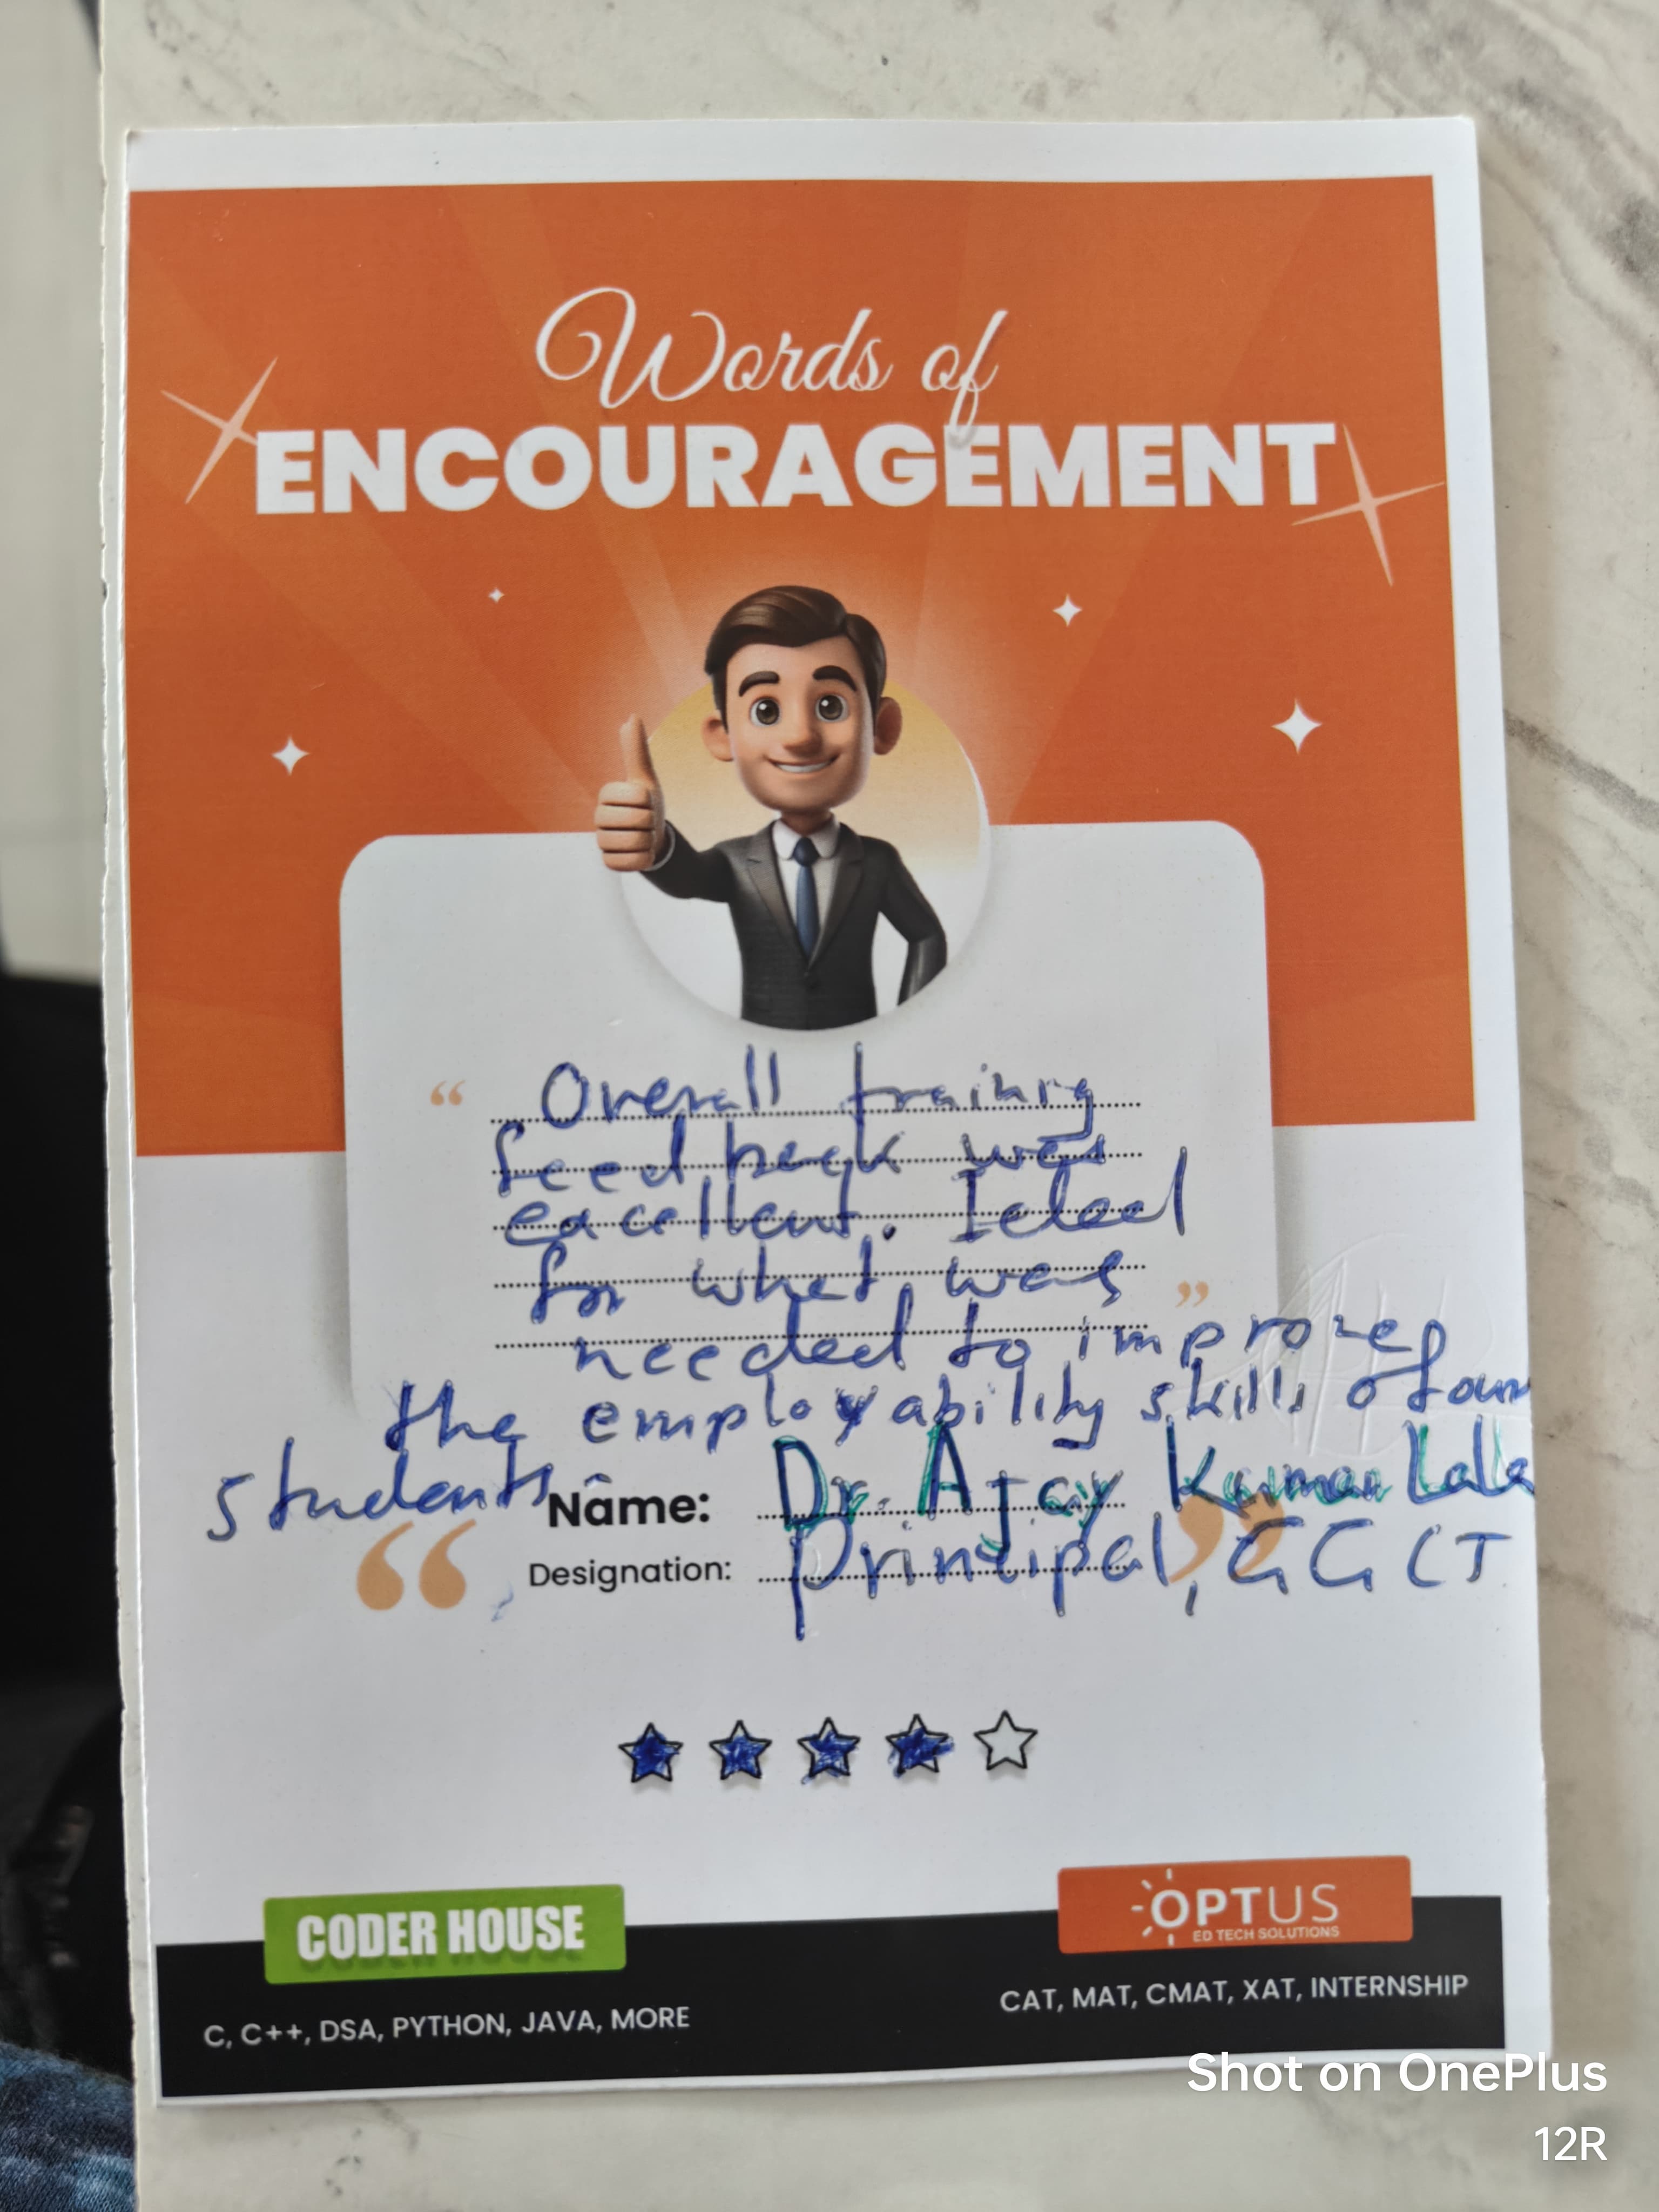 Words of
ENCOURAGEMENT
“ Overall training
feed back was
excellent. Ideal
for what was ”
needed to improve
the employability skills of our
students
Name: Dr. Ajay Kumar Lala
“ Designation: Principal, GGCT ”
CODER HOUSE
OPTUS
ED TECH SOLUTIONS
C, C++, DSA, PYTHON, JAVA, MORE
CAT, MAT, CMAT, XAT, INTERNSHIP
Shot on OnePlus
12R